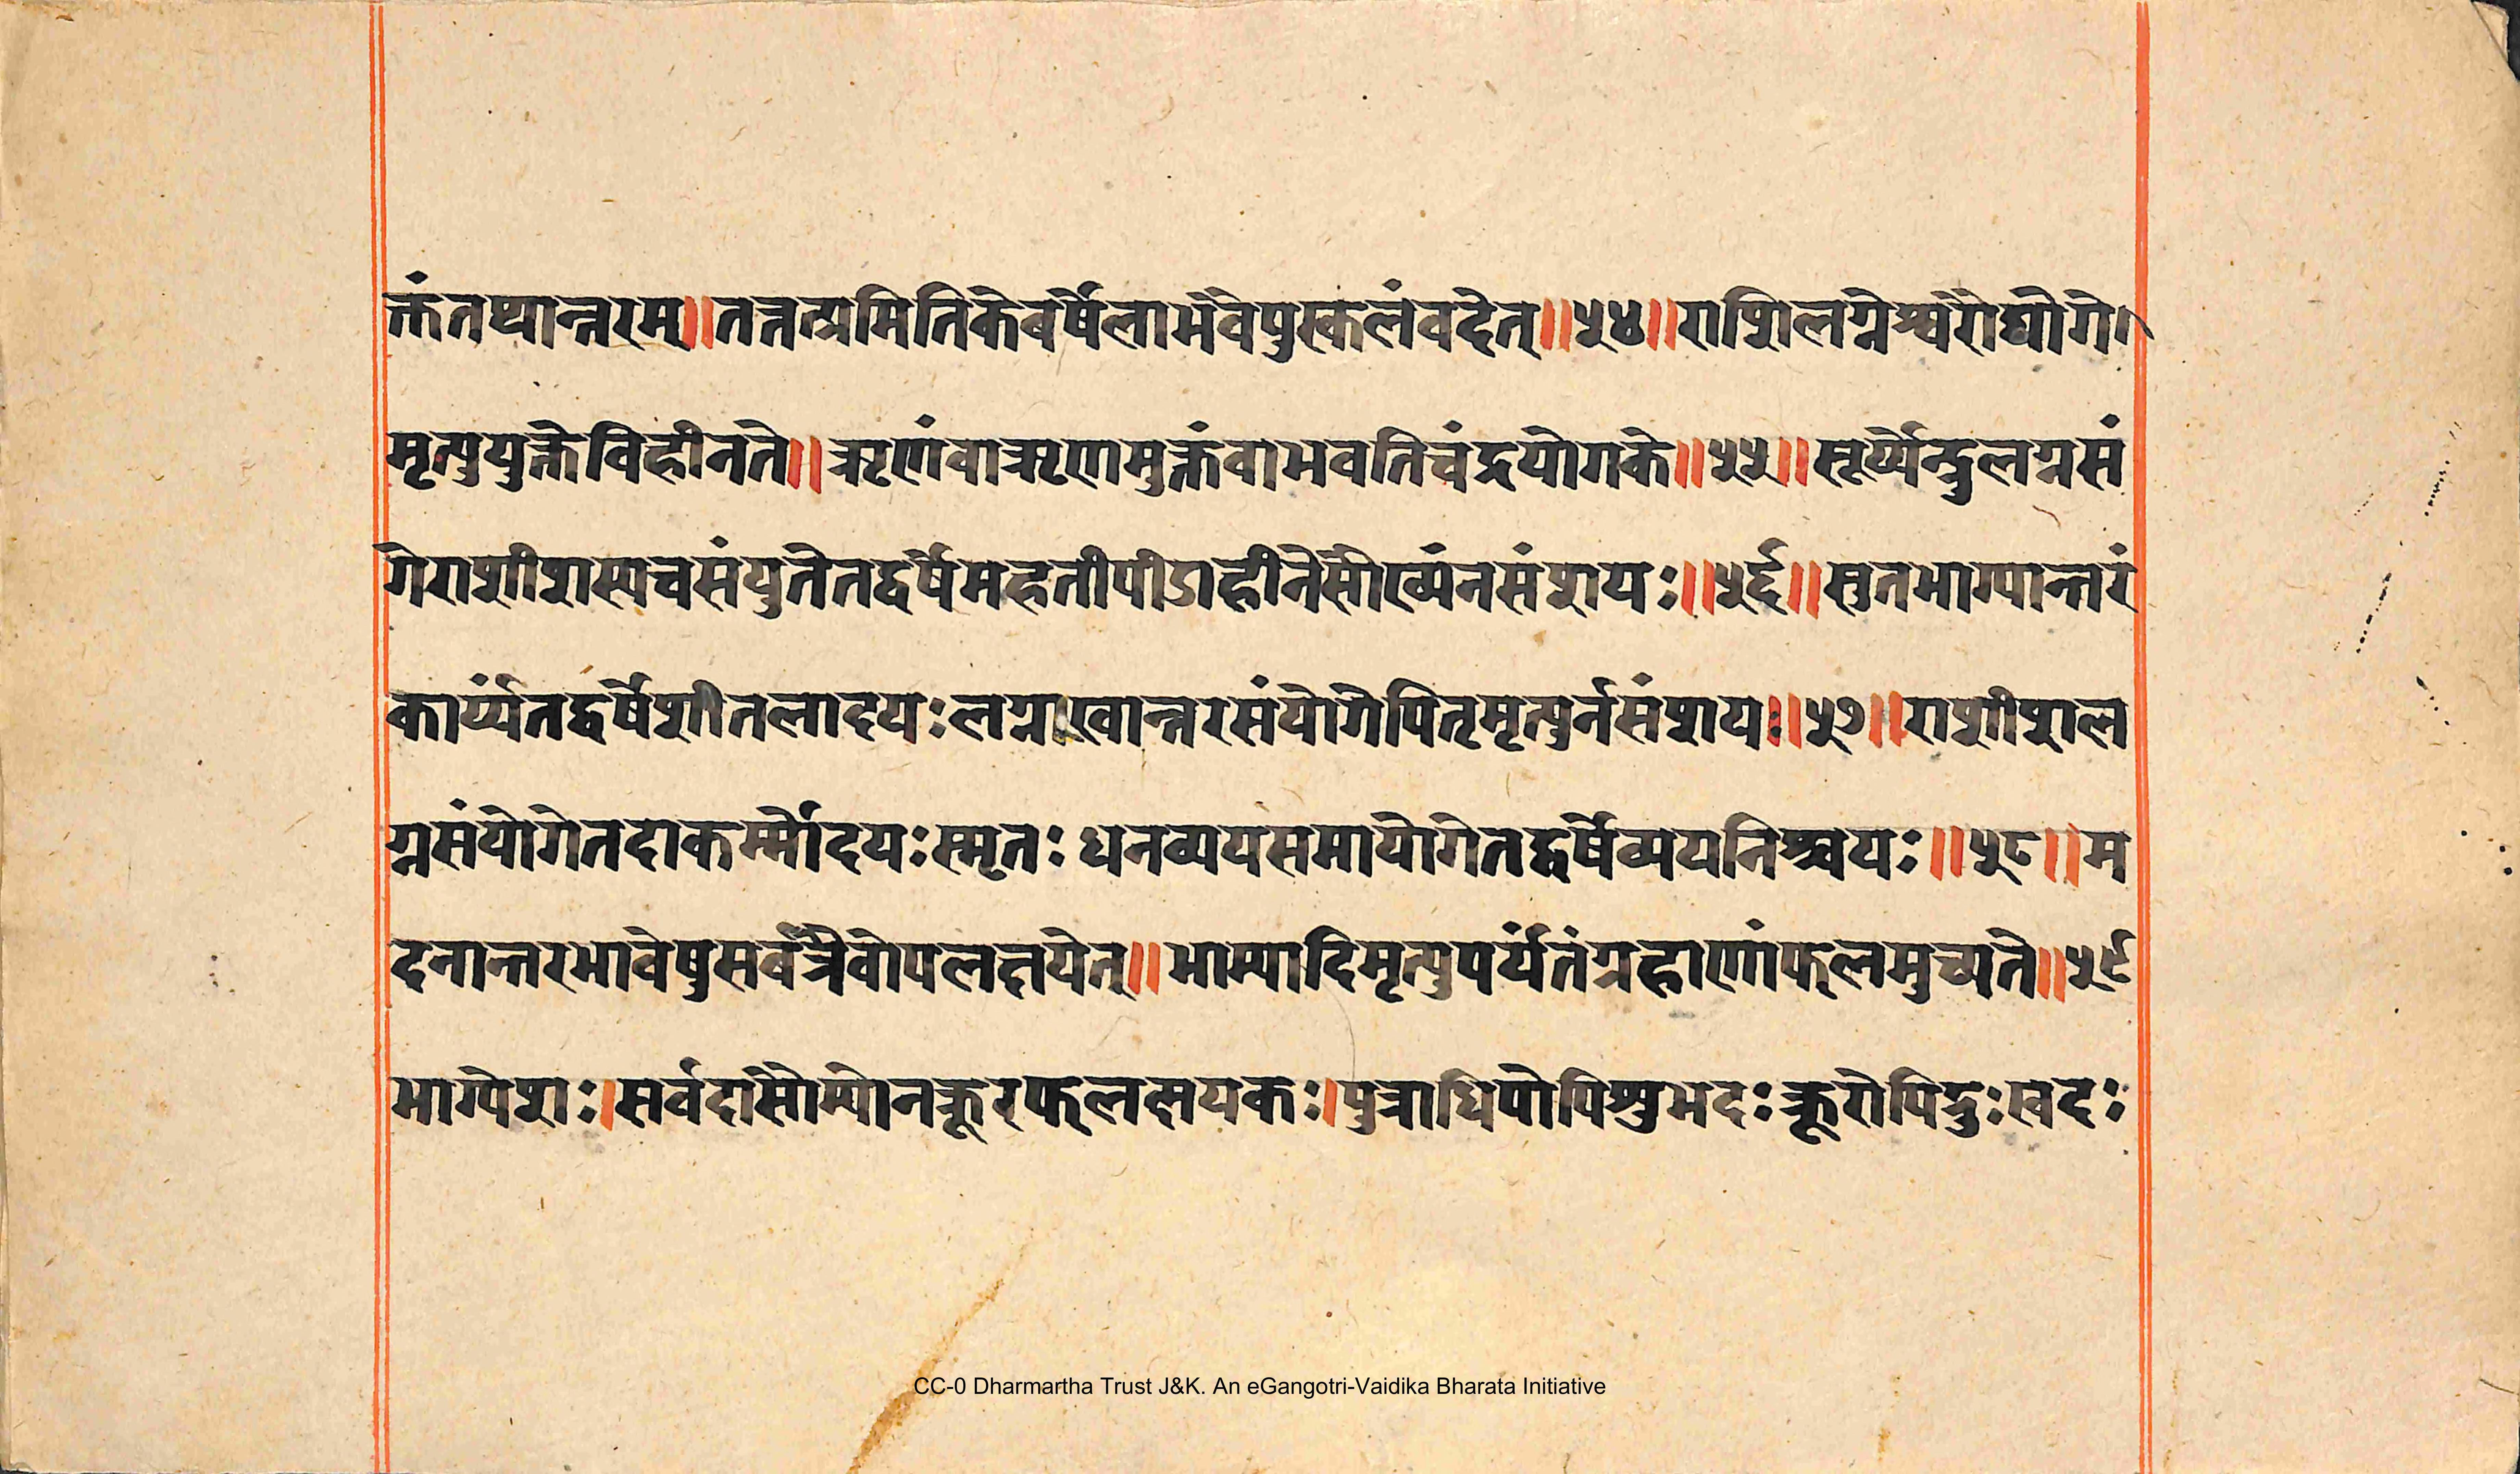 क्तंतथान्तरम्॥तत्तत्प्रमितिकेबर्षेलाभंवैपुस्कलंवदेत्॥५४॥राशिलग्नेश्चरोद्योगे।
मृत्युयुक्तेविहीनते॥ऋणंवाऋणमुक्तंवाभवतिचंद्रयोगके॥५५॥सूर्य्येन्दुलग्नसं
गेराशीशस्यचसंयुतेतद्वर्षेमहतीपीडाहीनेसौख्यंनसंशयः॥५६॥सुतभाग्यान्तरं
कार्य्यंतद्वर्षेशीतलादयःलग्नाखान्तरसंयोगेपितृमृत्युर्नसंशयः॥५७॥राशीशल
ग्नसंयोगेतदाकर्म्मोदयःस्मृतःधनव्ययसमायोगेतद्वर्षेव्ययनिश्चयः॥५८॥म
दनान्तरभावेषुसर्बत्रैवोपलक्षयेत्॥भाम्यादिमृत्युपर्यंतंग्रहाणांफलमुच्यते॥५९
भाग्येशः।सर्वदासौम्योनक्रूरफलक्षयकः।पुत्राधिपोपिशुभदःक्रूरोपिदुःखदः
CC-0 Dharmartha Trust J&K. An eGangotri-Vaidika Bharata Initiative